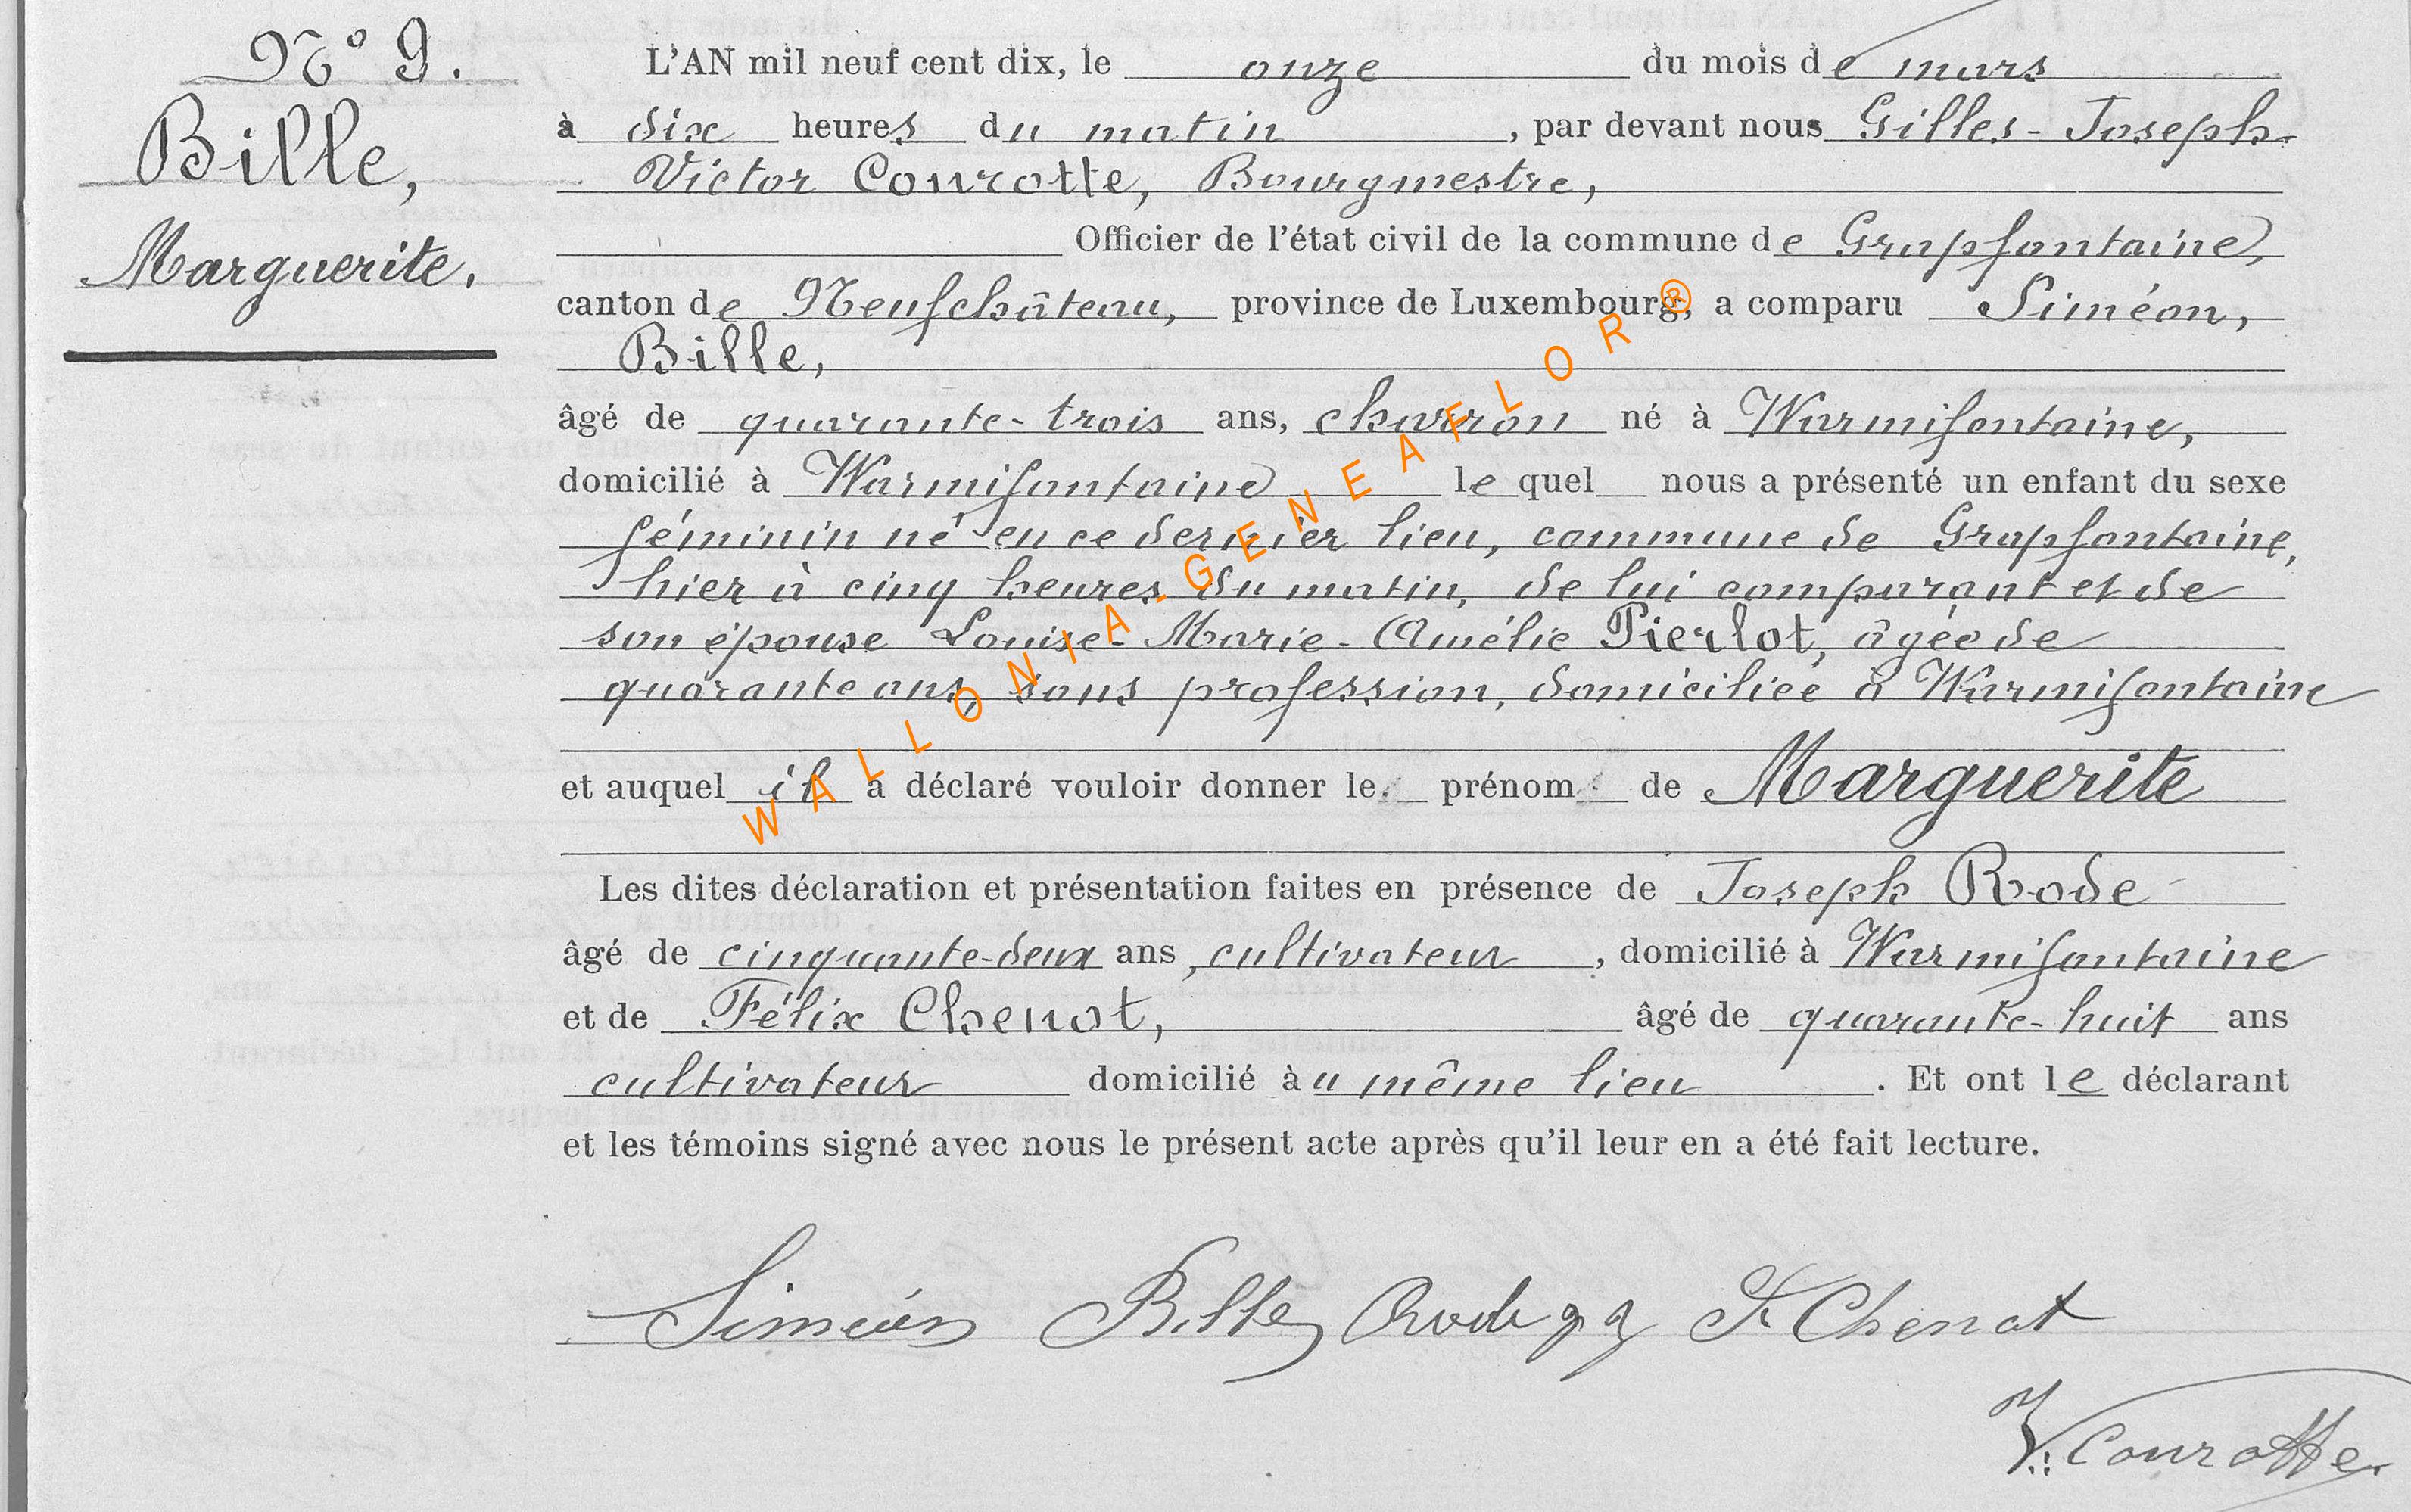 N° 9.
Bille,
Marguerite.
L'AN mil neuf cent dix, le onze du mois de mars
à dix heures du matin, par devant nous Gilles-Joseph-
Victor Conrotte, Bourgmestre,
Officier de l'état civil de la commune de Grapfontaine,
canton de Neufchâteau, province de Luxembourg, a comparu Siméon,
Bille,
âgé de quarante-trois ans, charron né à Warmifontaine,
domicilié à Warmifontaine lequel nous a présenté un enfant du sexe
féminin né en ce dernier lieu, commune de Grapfontaine,
hier à cinq heures du matin, de lui comparant et de
son épouse Louise-Marie-Amélie Pierlot, âgée de
quarante ans, sans profession, domiciliée à Warmifontaine
et auquel il a déclaré vouloir donner le prénom de Marguerite
Les dites déclaration et présentation faites en présence de Joseph Rode
âgé de cinquante-deux ans, cultivateur, domicilié à Warmifontaine
et de Félix Chenot, âgé de quarante-huit ans
cultivateur domicilié au même lieu. Et ont le déclarant
et les témoins signé avec nous le présent acte après qu'il leur en a été fait lecture.
Siméon Bille F Chenot
V. Conrotte
WALLONIA-GENEAFLOR®